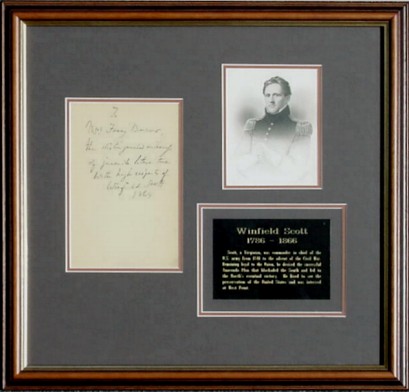 To
Mrs. Henry
the distinguished
of
with high respects of
Winfield Scott
Winfield Scott
1786 – 1866
Scott, a Virginian, was commander in chief of the
U.S. army from 1841 to the advent of the Civil War.
Remaining loyal to the Union, he devised the successful
Anaconda Plan that blockaded the South and led to
the North's eventual victory. He lived to see the
preservation of the United States and was interred
at West Point.